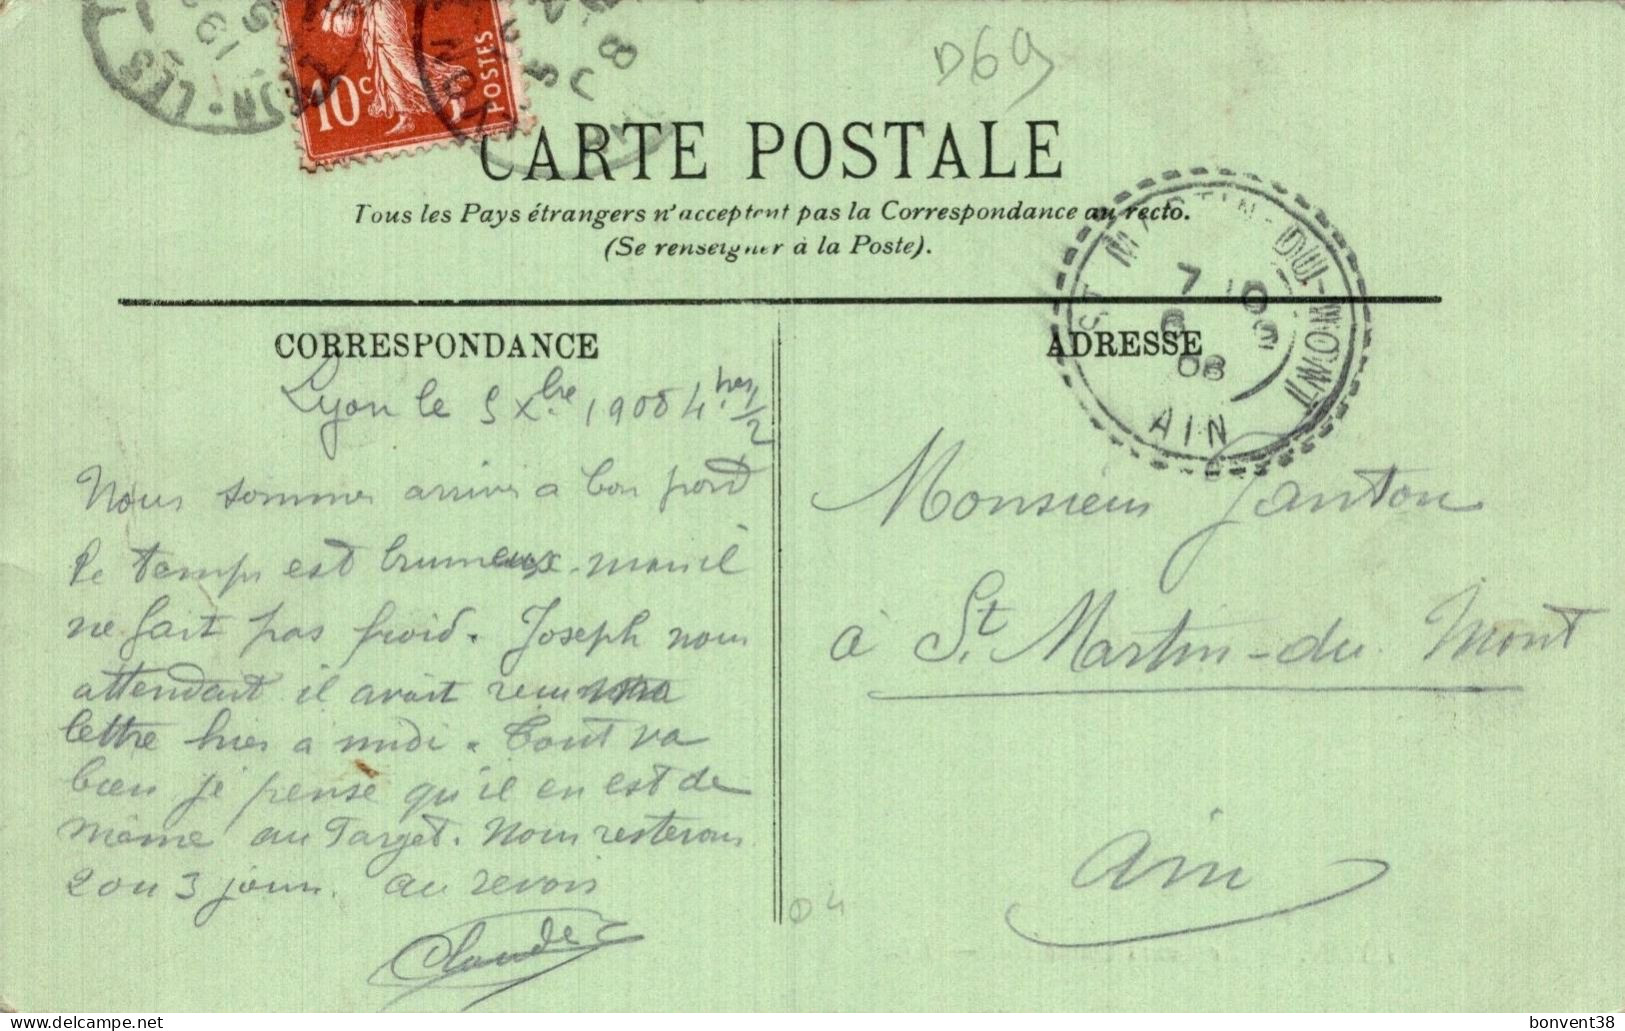 D69
10c
POSTES
LYON-LES
CARTE POSTALE
Tous les Pays étrangers n'acceptent pas la Correspondance au recto.
(Se renseigner à la Poste).
ST MARTIN-DU-MONT
7
6
08
AIN
CORRESPONDANCE
Lyon le 5 Xbre 1908 4 hres 1/2
Nous sommes arrivés a bon port
le temps est brumeux. mais il
ne fait pas froid. Joseph nous
attendait il avait reçu ma
lettre hier a midi. Tout va
bien je pense qu'il en est de
même au Target. Nous resterons
2 ou 3 jours. au revoir
Claude
ADRESSE
Monsieur Janton
à St. Martin-du Mont
Ain
04
bonvent38